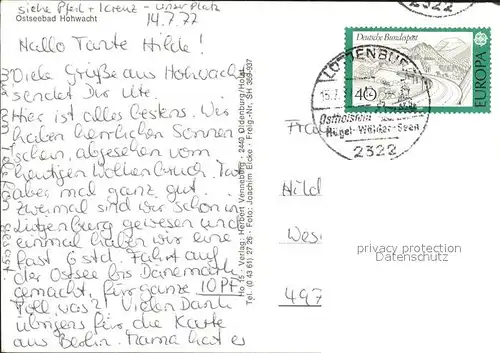 siehe Pfeil + Kreuz - unser Platz
Ostseebad Hohwacht
14.7.77
Hallo Tante Hilde!
Viele Grüße aus Hohwacht
sendet Dir Ute.
Hier ist alles bestens. Wir
haben herrlichen Sonnen-
schein, abgesehen vom
heutigen Wolkenbruch. Tat
aber mal ganz gut.
Zweimal sind wir schon in
Lütjenburg gewesen und
einmal haben wir eine
fast 6 std. Fahrt auf
der Ostsee bis Dänemark
gemacht, für ganze 10 Pf.
Toll, was? Vielen Dank
übrigens für die Karte
aus Berlin. Mama hat es
mir am Telefon gesagt.
Ho 15 - Verlag: Herbert Venneberg - 2440 Oldenburg/Holst.
Tel. (0 43 61) 27 26 - Foto: Joachim Eicke - Freig.-Nr. SH 389-937
2322
Deutsche Bundespost
40
EUROPA
15.7.
Ostholstein
Hügel-Wälder-Seen
2322
Frau
Hild
Wes
497
privacy protection
DatenSchutz